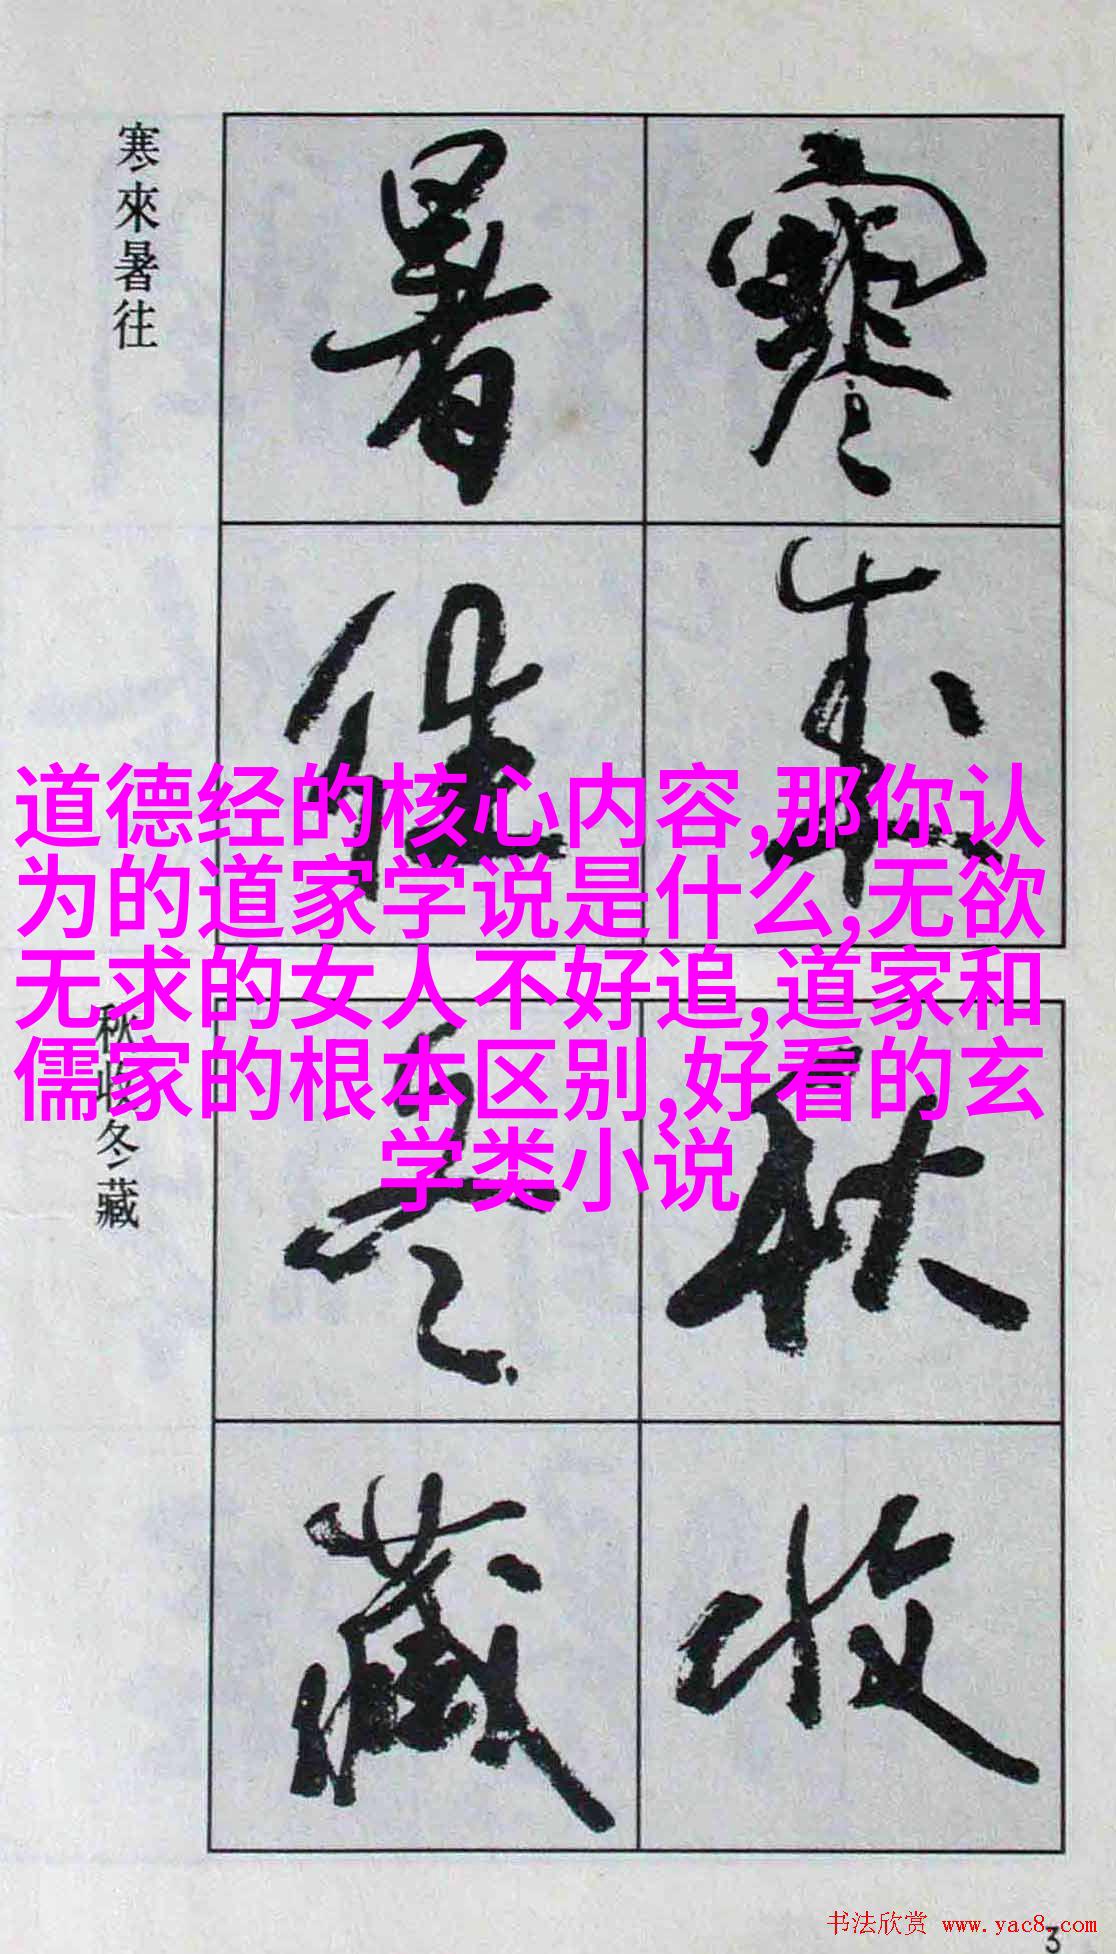 寒來暑往
寒來
暑往
道德经的核心内容,那你认
为的道家学说是什么,无欲
无求的女人不好追,道家和
儒家的根本区别,好看的玄
学类小说
秋收冬藏
秋收
冬藏
书法欣赏 www.yac8.com
3